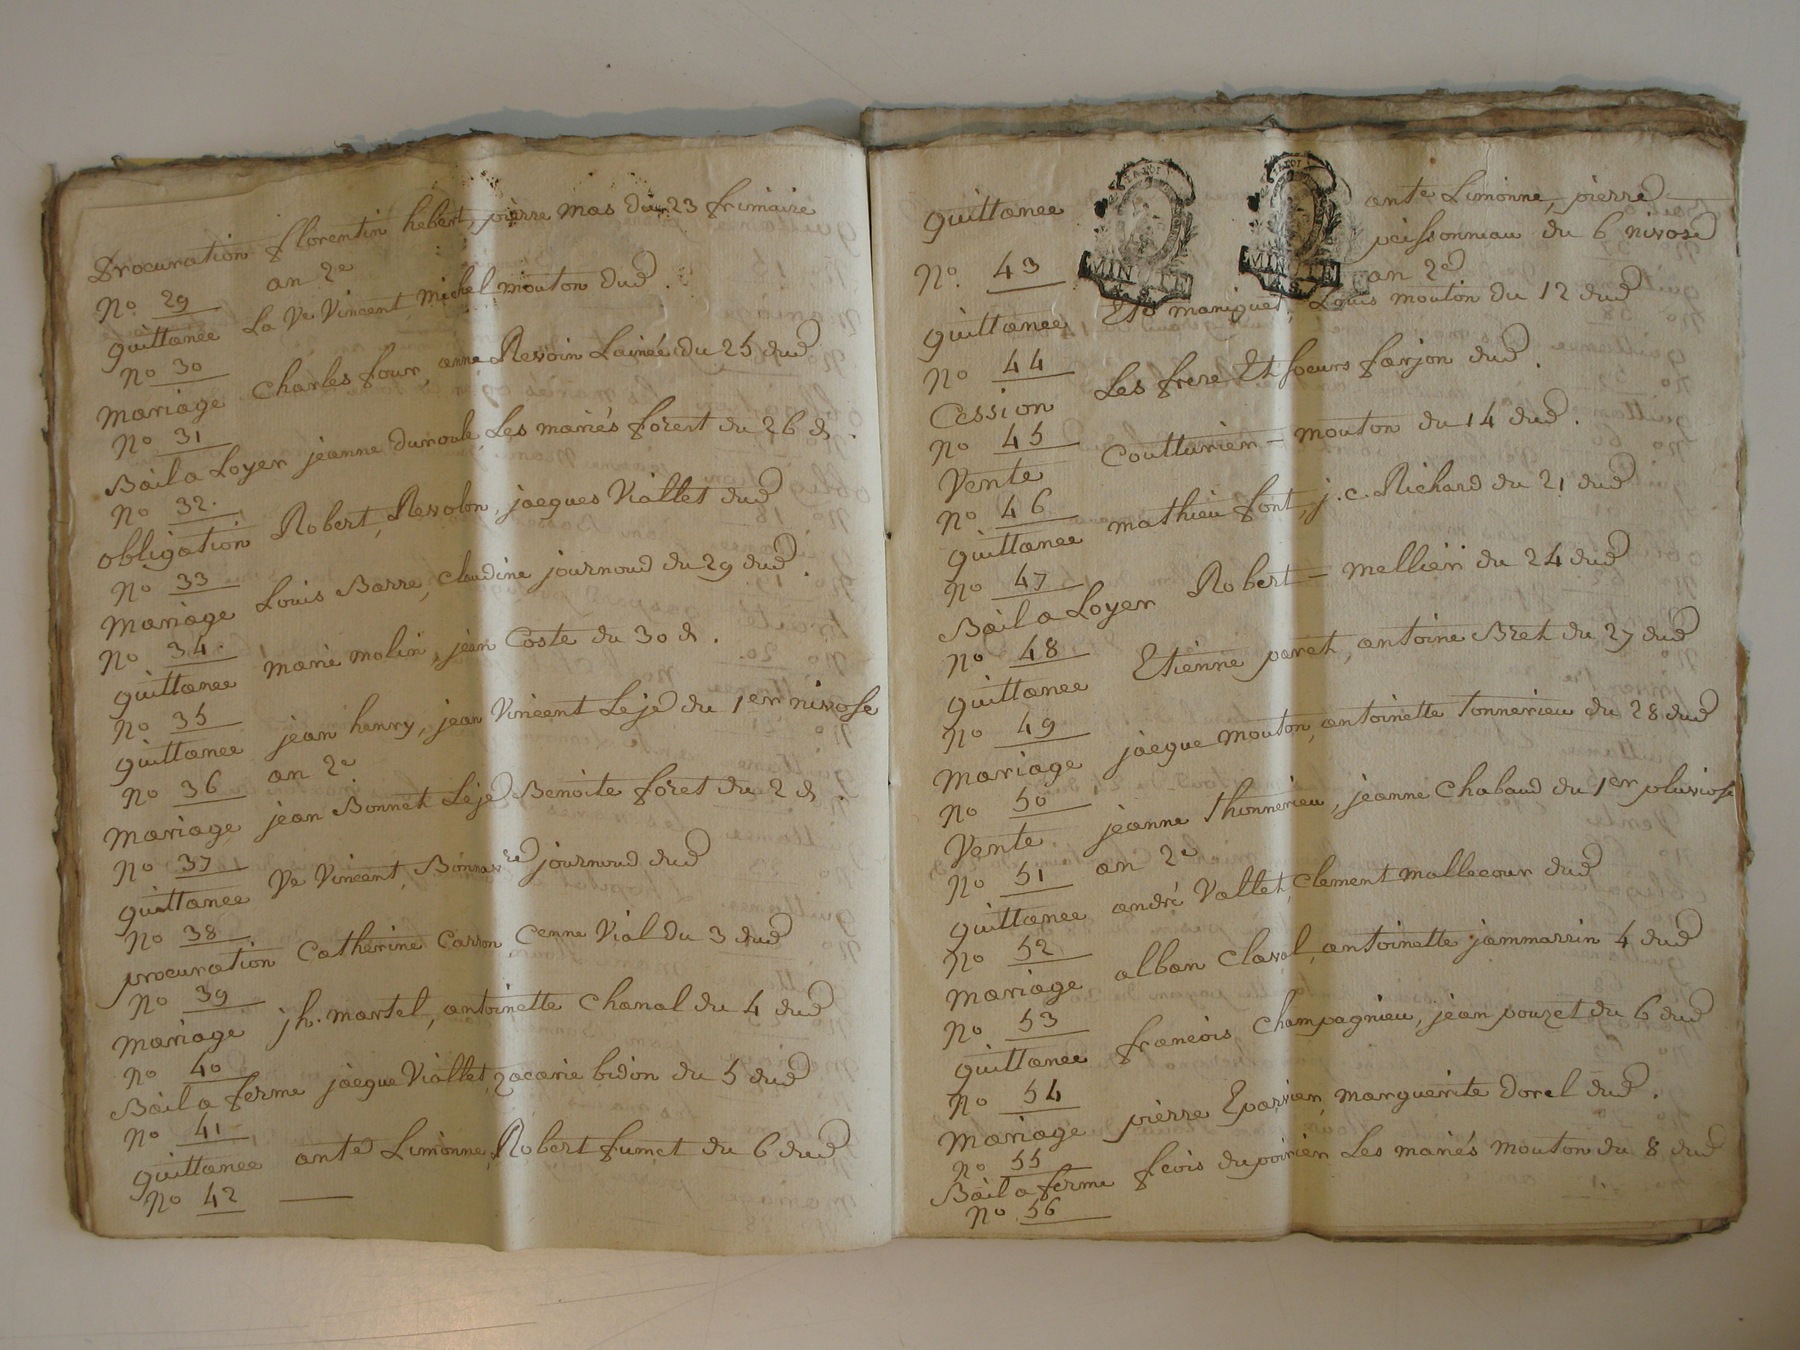 Procuration florentin hebert, pierre mas du 23 frimaire
No 29 an 2e
quittance La Ve Vincent, Michel mouton dud.
No 30
mariage Charles four, anne Revoin Lainée du 25 dud
No 31
Bail a Loyer jeanne Les mariés foret du 26 d.
No 32.
obligation Robert, Revolon, jacques Viallet dud
No 33
mariage Louis Barre, claudine journoud du 29 dud.
No 34.
quittance marie molin, jean Coste du 30 d.
No 35
quittance jean henry, jean Vincent Le je du 1er nivose
No 36 an 2e
mariage jean Bonnet Le je Benoite foret du 2 d.
No 37
quittance Ve Vincent, journoud dud
No 38
procuration Catherine Carron Vial du 3 dud
No 39
mariage jh. martel, antoinette Chanal du 4 dud
No 40
Bail a ferme jacque Viallet, zacarie bidon du 5 dud
No 41
quittance ante Limonne, Robert fumet du 6 dud
No 42
quittance ante Limonne, pierre
peissonneau du 6 nivose
No. 43 an 2e
MINUTE MINUTE
quittance maniquet, Louis mouton du 12 dud
No 44
Cession Les frere Et soeurs farjon dud.
No 45
Vente Coutturier - mouton du 14 dud.
No 46
quittance mathieu font, j. c. Richard du 21 dud
No 47
Bail a Loyer Robert - mellier du 24 dud
No 48
quittance Etienne paret, antoine Bret du 27 dud
No 49
mariage jacque mouton, antoinette tonnerieu du 28 dud
No 50
Vente. jeanne thonnerieu, jeanne Chabaud du 1er pluviose
No 51 an 2e
quittance andré Vallet, Clement mallecour dud
No 52
mariage alban Claval, antoinette jammarrin 4 dud
No 53
quittance francois Champagnieu, jean pouzet du 6 dud
No 54
mariage pierre Eparvier, marguerite Dorel dud.
No 55
Bail a ferme fcois dupoirier Les mariés mouton du 8 dud
No 56